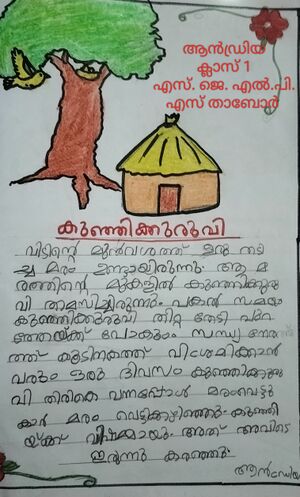 ആൻഡ്രിയ
ക്ലാസ് 1
എസ്. ജെ. എൽ.പി.
എസ് താബോർ
കുഞ്ഞിക്കുരുവി
വീടിന്റെ മുൻവശത്ത് ഒരു തടി
ച്ച മരം ഉണ്ടായിരുന്നു. ആ മ
രത്തിന്റെ മുകളിൽ കുഞ്ഞിക്കുരു
വി താമസിച്ചിരുന്നു. പകൽ സമയം
കുഞ്ഞിക്കുരുവി തീറ്റ തേടി പുറ
ത്തേയ്ക്ക് പോകും. സന്ധ്യ നേര
ത്ത് കൂടിനകത്ത് വിശ്രമിക്കാൻ
വരും ഒരു ദിവസം കുഞ്ഞിക്കുരു
വി തിരികെ വന്നപ്പോൾ മരംവെട്ടു
കാർ മരം വെട്ടിക്കഴിഞ്ഞു. കുഞ്ഞി
യ്ക്ക് വിഷമമായി. അത് അവിടെ
ഇരുന്നു കരഞ്ഞു.
ആൻഡ്രിയ